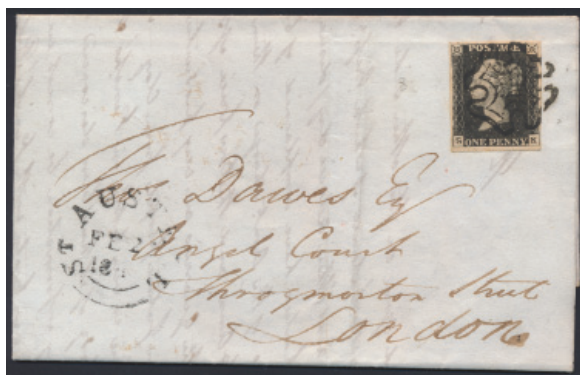 POSTAGE
ONE PENNY
Thos Dawes Esq
Angel Court
Throgmorton Street
London
ST AUST
FE 2
18